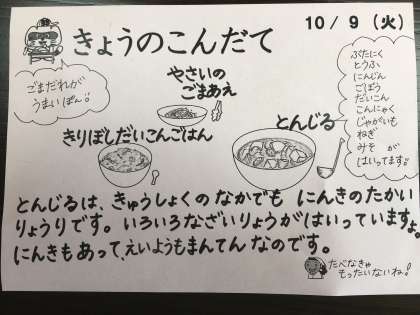 10/9（火）
きょうのこんだて
ごまだれが
うまいぽん!!
やさいの
ごまあえ
きりぼしだいこんごはん
とんじる
ぶたにく
とうふ
にんじん
ごぼう
だいこん
こんにゃく
じゃがいも
ねぎ
みそ が
はいってます。
とんじるは、きゅうしょくの なかでも にんきのたかい
りょうりです。いろいろなざいりょうがはいっていますよ。
にんきもあって、えいようもまんてん なのです。
たべなきゃ
もったいないね!